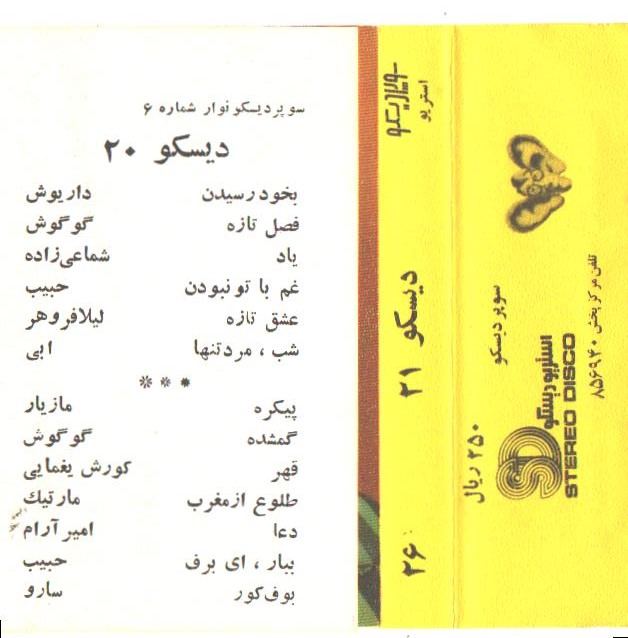 سوپر دیسکو نوار شماره ۶
دیسکو ۲۰
بخود رسیدن داریوش
فصل تازه گوگوش
یاد شماعی‌زاده
غم با تو نبودن حبیب
عشق تازه لیلا فروهر
شب ، مرد تنها ابی
***
پیکره مازیار
گمشده گوگوش
قهر کورش یغمایی
طلوع از مغرب مارتیك
دعا امیر آرام
ببار ، ای برف حبیب
بوف کور سارو
سوپر دیسکو
استریو
دیسکو ۲۱
۲۶
سوپر دیسکو
۲۵۰ ریال
استریو دیسکو
STEREO DISCO
تلفن مرکز پخش ۸۵۶۹۴۰